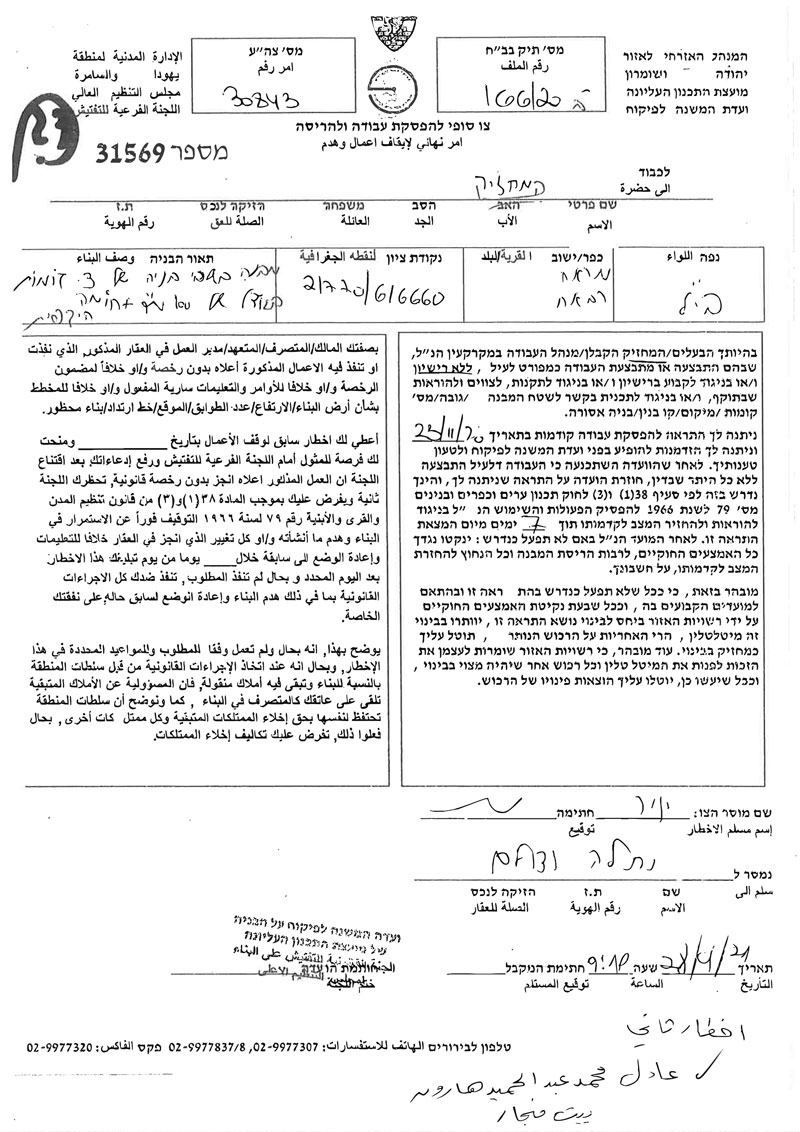 המנהל האזרחי לאזור
יהודה - ושומרון
מועצת התכנון העליונה
ועדת המשנה לפיקוח
מס׳ תיק בב״ח
رقم الملف
ב 166/20
מס׳ צה״ע
امر رقم
30843
الإدارة المدنية لمنطقة
يهودا والسامرة
مجلس التنظيم العالي
اللجنة الفرعية للتفتيش
צו סופי להפסקת עבודה ולהריסה
امر نهائي لإيقاف اعمال وهدم
מספר 31569
לכבוד
الى حضرة
המחזיק
שם פרטי האב הסב משפחה הזיקה לנכס ת.ז
الاسم الأب الجد العائلة الصلة للعق رقم الهوية
נפה اللواء
כפר/ישוב القرية/البلد
נקודת ציון لنقطه الجغرافية
תאור הבניה وصف البناء
21770/616660
מבנה בשלבי בניה של
היקפית
בהיותך הבעלים/המחזיק הקבלן/מנהל העבודה במקרקעין הנ״ל,
שבהם התבצעה או מתבצעת העבודה כמפורט לעיל, ללא רישיון
ו/או בניגוד לקבוע ברישיון ו/או בניגוד לתקנות, לצווים ולהוראות
שבתוקף, ו/או בניגוד לתכנית בקשר לשטח המבנה /גובה/מס׳
קומות /מיקום/קו בנין/בניה אסורה.
ניתנה לך התראה להפסקת עבודה קודמות בתאריך 25/11/20
וניתנה לך הזדמנות להופיע בפני ועדת המשנה לפיקוח ולטעון
טענותיך. לאחר שהוועדה השתכנעה כי העבודה דלעיל התבצעה
ללא כל היתר שבדין, חוזרת הועדה על התראה שניתנה לך, והינך
נדרש בזה לפי סעיף 38(1) ו(3) לחוק תכנון ערים וכפרים ובנינים
מס׳ 79 לשנת 1966 להפסיק הפעולות והשימוש הנ ״ל בניגוד
להוראות ולהחזיר המצב לקדמותו תוך 7 ימים מיום המצאת
התראה זו. לאחר המועד הנ״ל באם לא תפעל כנדרש: ינקטו נגדך
כל האמצעים החוקיים, לרבות הריסת המבנה וכל הנחוץ להחזרת
המצב לקדמותו, על חשבונך.
מובהר בזאת, כי ככל שלא תפעל כנדרש בהת ראה זו ובהתאם
למועדים הקבועים בה, וככל שבעת נקיטת האמצעים החוקיים
על ידי רשויות האזור ביחס לבינוי נושא התראה זו, יוותרו בבינוי
זה מיטלטלין, הרי האחריות על הרכוש הנותר , תוטל עליך
כמחזיק בבינוי. עוד מובהר, כי רשויות האזור שומרות לעצמן את
הזכות לפנות את המיטל טלין וכל רכוש אחר שיהיה מצוי בבינוי,
וככל שיעשו כן, יוטלו עליך הוצאות פינויו של הרכוש.
بصفتك المالك/المتصرف/المتعهد/مدير العمل في العقار المذكور, الذي نفذت
او تنفذ فيه الاعمال المذكورة أعلاه بدون رخصة و/او خلافاً لمضمون
الرخصة و/او خلافا للأوامر والتعليمات سارية المفعول و/او خلافا للمخطط
بشأن أرض البناء/الارتفاع/عدد الطوابق/الموقع/خط ارتداد/بناء محظور.
أعطي لك اخطار سابق لوقف الأعمال بتأريخ ومنحت
لك فرصة للمثول أمام اللجنة الفرعية للتفتيش ورفع إدعاءاتك, بعد اقتناع
اللجنة ان العمل المذكور اعلاه انجز بدون رخصة قانونية, تحظرك اللجنة
ثانية ويفرض عليك بموجب المادة ٣٨(١)و(٣) من قانون تنظيم المدن
والقرى والأبنية رقم ٧٩ لسنة ١٩٦٦ التوقيف فوراً عن الاستمرار في
البناء وهدم ما أنشأته و/او كل تغيير الذي انجز في العقار خلافا للتعليمات
وإعادة الوضع الى سابقة خلال يوما من يوم تبليغك هذا الاخطار.
بعد اليوم المحدد و بحال لم تنفذ المطلوب, تنفذ ضدك كل الاجراءات
القانونية بما في ذلك هدم البناء وإعادة الوضع لسابق حاله, على نفقتك
الخاصة.
يوضح بهذا, انه بحال ولم تعمل وفقا للمطلوب وللمواعيد المحددة في هذا
الإخطار, وبحال انه عند اتخاذ الإجراءات القانونية من قبل سلطات المنطقة
بالنسبة للبناء وتبقى فيه أملاك منقولة, فان المسؤولية عن الأملاك المتبقية
تلقى على عاتقك كالمتصرف في البناء , كما ونوضح أن سلطات المنطقة
تحتفظ لنفسها بحق إخلاء الممتلكات المتبقية وكل ممتل كات أخرى, بحال
فعلوا ذلك, تفرض عليك تكاليف إخلاء الممتلكات.
שם מוסר הצו: יניר חתימה
إسم مسلم الاخطار توقيع
נמסר ל
سلم الى
שם ת.ז הזיקה לנכס
الاسم رقم الهوية الصلة للعقار
ועדת המשנה לפיקוח על הבניה
של מועצת התכנון העליונה
اللجنة الفرعية للتفتيش على البناء
חותמת הועדה
ختم اللجنة
תאריך שעה 9:10 חתימת המקבל
التأريخ الساعة توقيع المستلم
טלפון לבירורים الهاتف للاستفسارات: 02-9977307, 02-9977837/8 פקס الفاكس: 02-9977320
اخطار ثاني
عادل محمد عبد الحميد هارون
بيت منجار